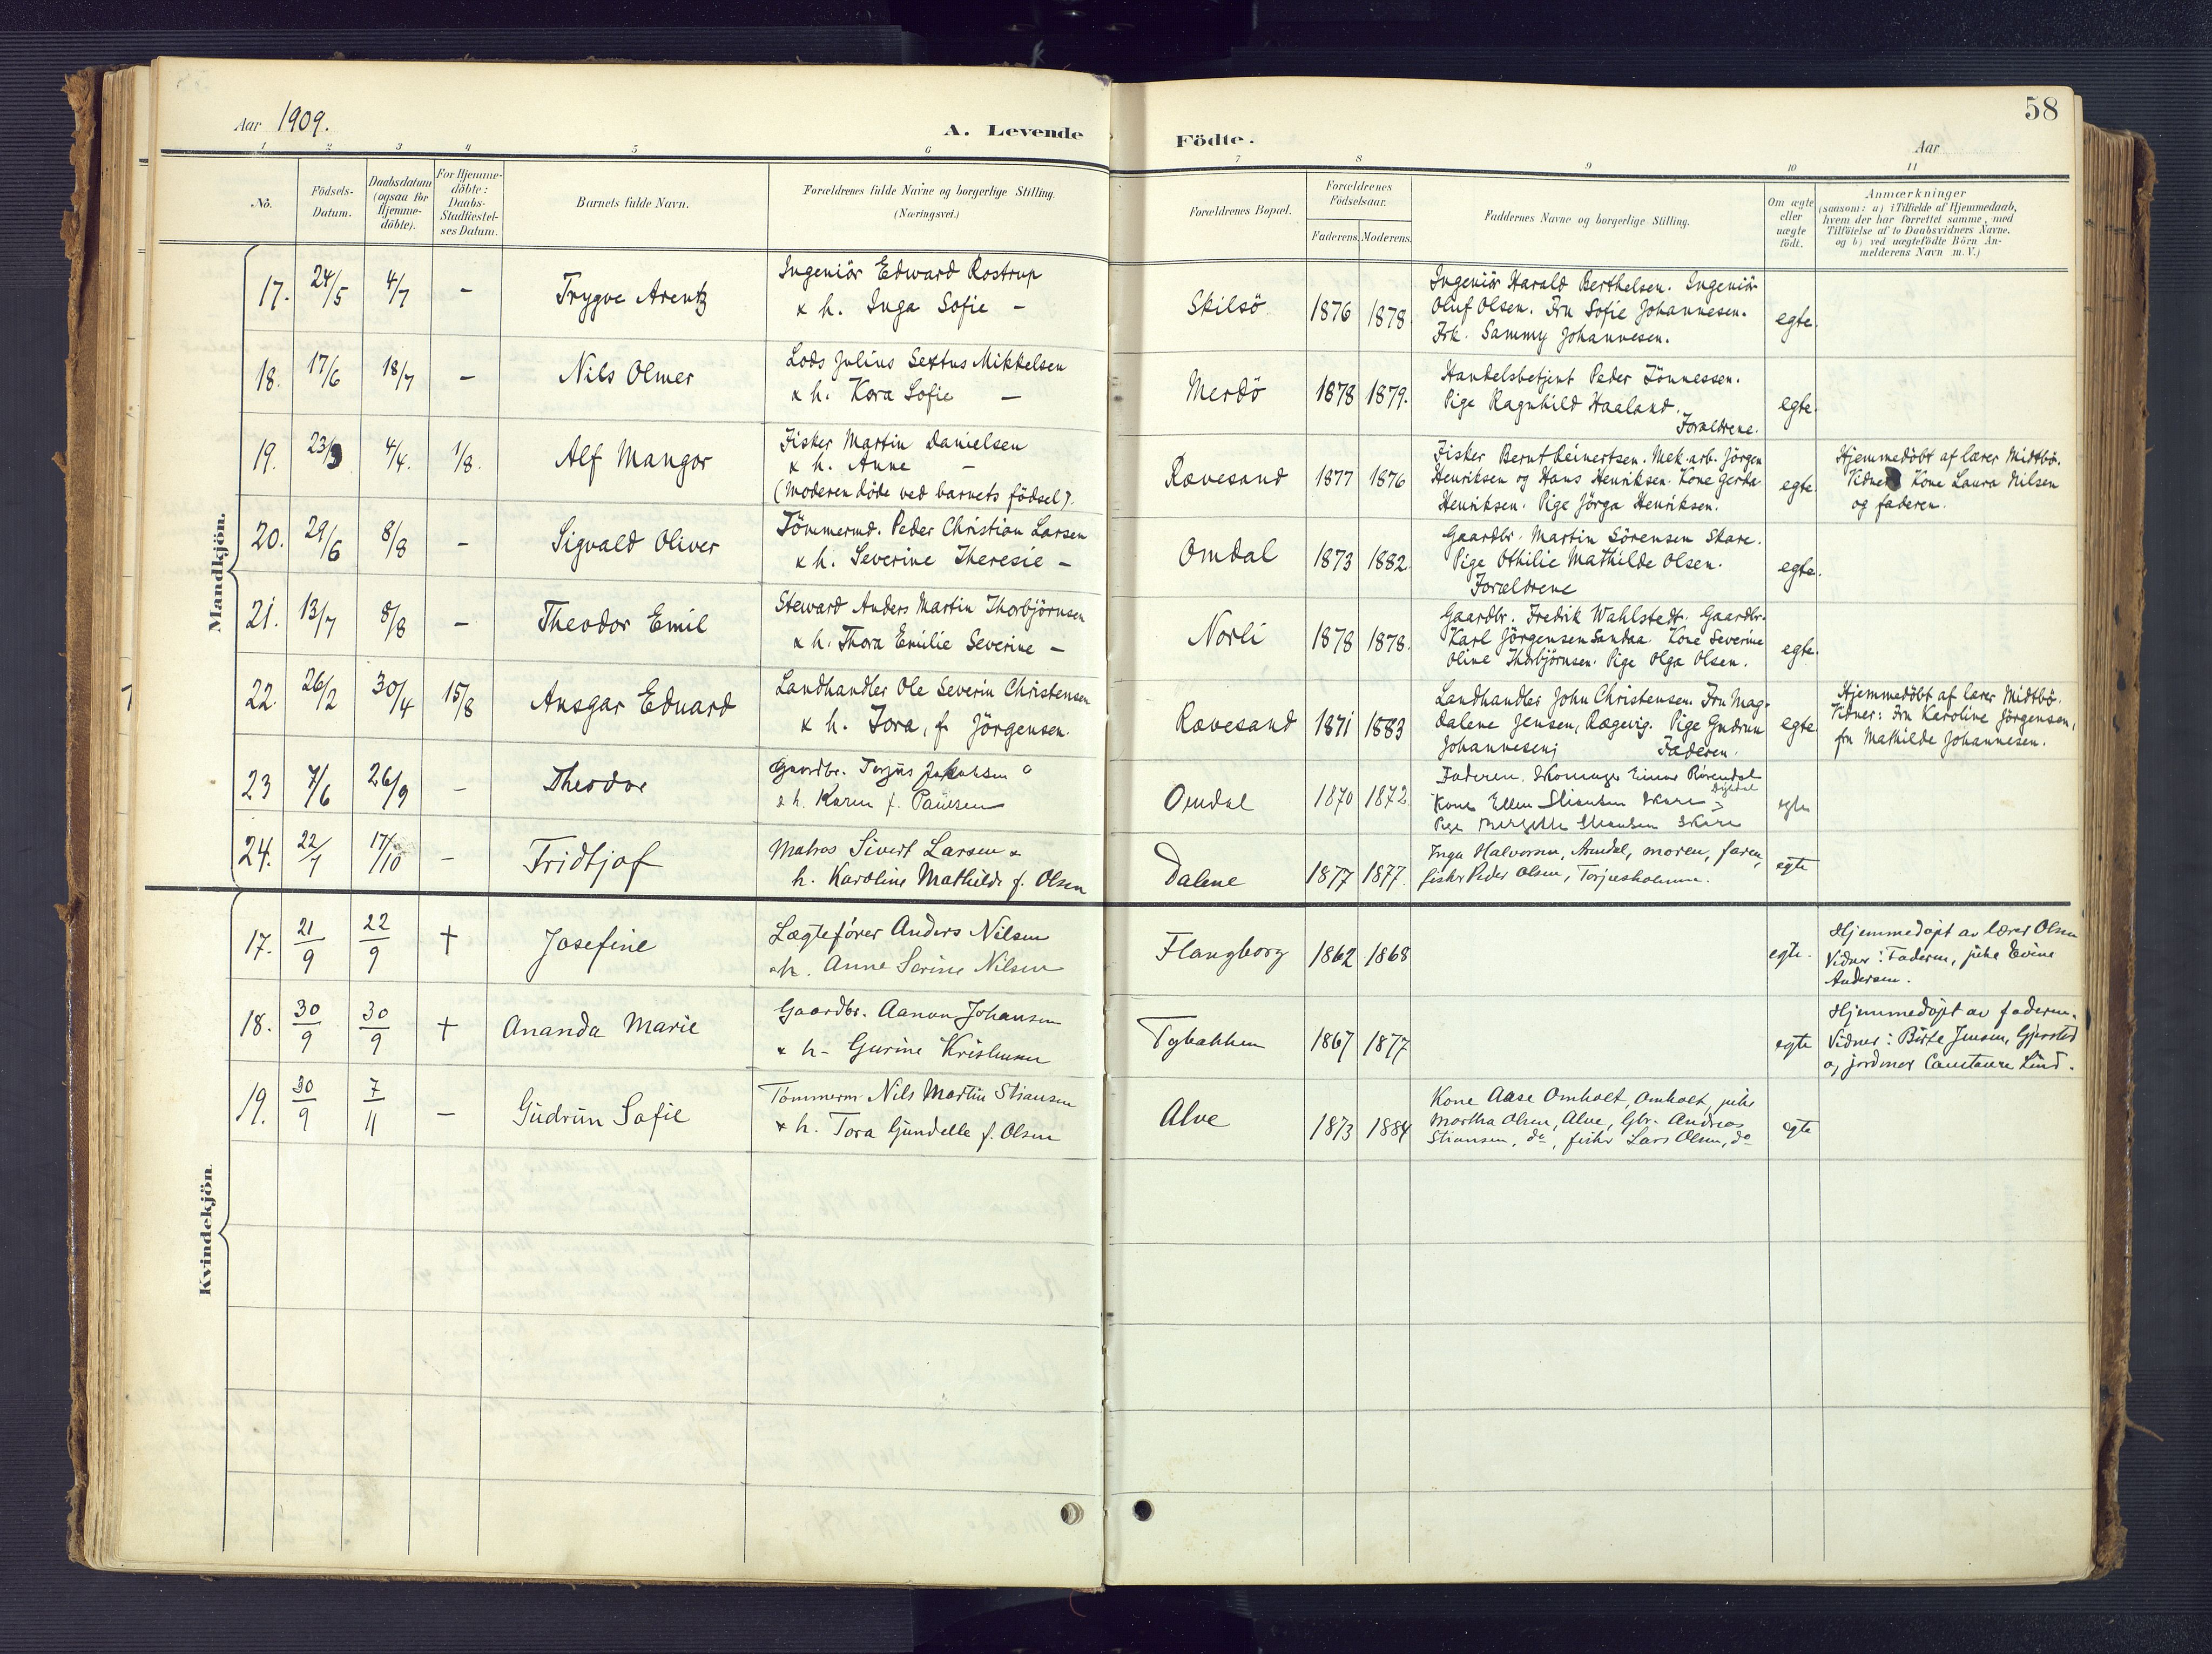 58
Aar 1909.
A. Levende Födte.
Aar
1 2 3 4 5 6 7 8 9 10 11
No.
Födsels-Datum.
Daabsdatum (ogsaa for Hjemme-döbte).
For Hjemme-döbte: Daabs-Stadfæstel-ses Datum.
Barnets fulde Navn.
Forældrenes fulde Navne og borgerlige Stilling.
(Næringsvei.)
Forældrenes Bopæl.
Forældrenes Födselsaar.
Faderens. Moderens.
Faddernes Navne og borgerlige Stilling.
Om ægte eller uægte födt.
Anmærkninger
(saasom: a) i Tilfælde af Hjemmedaab,
hvem der har forrettet samme, med
Tilföielse af to Daabsvidners Navne.
og b) ved uægtefödte Börn An-
melderens Navn m. V.)
Mandkjön.
17. 24/5 4/7 - Trygve Arentz
Ingeniör Edward Rostrup
& h. Inga Sofie -
Skilsö 1876 1878.
Ingeniör Harald Berthelsen. Ingeniör
Oluf Olsen. Fru Sofie Johannesen.
Frk. Sammy Johannesen.
egte.
18. 17/6 18/7 - Nils Olmer
Lods Julius Sextus Mikkelsen
& h. Kora Sofie -
Merdö 1878 1879.
Handelsbetjent Peder Tönnessen.
Pige Ragnhild Haaland.
Forældrene.
egte.
19. 23/3 4/4. 1/8. Alf Mangor
Fisker Martin Danielsen
& h. Anne -
(Moderen döde ved barnets födsel).
Rævesand 1877 1876
Fisker Bernt Reinertsen. Mek. arb. Jörgen
Henriksen og Hans Henriksen. Kone Gerha
Henriksen. Pige Jörga Henriksen.
egte.
Hjemmedöbt af lærer Midtbö.
Vidner Kone Laura Nilsen
og faderen.
20. 29/6 8/8 - Sigvald Oliver
Tömmermd. Peder Christian Larsen
& h. Severine Theresie -
Omdal 1873 1882.
Gaardbr. Martin Sörensen Skare.
Pige Othilie Mathilde Olsen.
Forældrene
egte.
21. 13/7 8/8 - Theodor Emil
Steward Anders Martin Thorbjörnsen
& h. Thora Emilie Severine -
Norli 1878 1878.
Gaardbr. Fredrik Wahlstedt. Gaardbr.
Karl Jörgensen Sandaa. Kone Severine
Oline Thorbjörnsen. Pige Olga Olsen.
egte.
22. 26/2 30/4 15/8 Ansgar Edvard
Landhandler Ole Severin Christensen
& h. Tora, f. Jörgensen.
Rævesand 1871 1883
Landhandler John Christensen. Fru Mag-
dalene Jensen, Rægevig. Pige Gudrun
Johannesen; Faderen.
egte
Hjemmedöbt af lærer Midtbö.
Vidner: Fru Karoline Jörgensen,
fru Mathilde Johannesen.
23 7/6 26/9 - Theodor
Gaardbr. Terjus Jakobsen
& h. Karen f. Paulsen
Omdal 1870 1872.
Faderen. Skomager Einar Rörendal
Kone Ellen Stiansen Skare
Pige Stiansen Skare
egte
24. 22/7 17/10 - Fridtjof
Matros Sivert Larsen &
h. Karoline Mathilde f. Olsen
Dalene 1877 1877.
Inga Halvorsen, Arendal, moren, faren,
fisker Peder Olsen, Torjusholmen.
egte
Kvindekjön
17. 21/9 22/9 † Josefine
Lægtefører Anders Nilsen
& h. Anne Serine Nilsen
Flangborg 1862 1868
egte.
Hjemmedøpt av lærer Olsen
Vidner: Faderen, pike Evine
Andersen.
18. 30/9 30/9 † Ananda Marie
Gaardbr. Aanon Johansen
& h. Gurine Kristensen
Tybakken 1867 1877
egte
Hjemmedøpt av faderen.
Vidner: Birte Jensen, Gjersted
og jordmor Constance Lind.
19. 30/9 7/11 - Gudrun Sofie
Tømmerm. Nils Martin Stiansen
& h. Tora Gundelle f. Olsen
Alve 1873 1884
Kone Aase Omholt, Omholt, pike
Martha Olsen, Alve, Gbr. Andreas
Stiansen, do, fisker Lars Olsen, do
egte